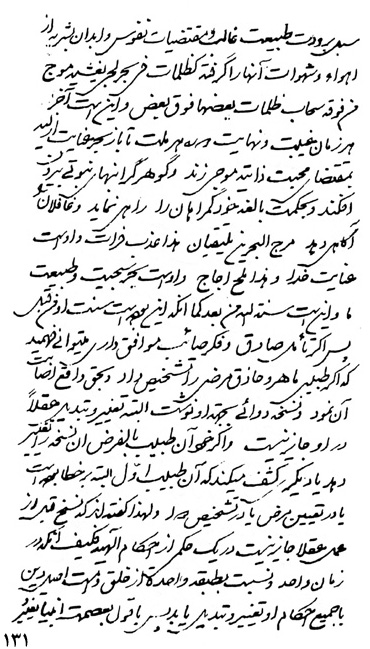 سیل برودت طبیعت غالب و مقتضیات نفوس و ابدان بشریه از
اهواء و شهوات آنها را گرفته کظلمات فی بحر لجی یغشیه موج
من فوقه سحاب ظلمات بعضها فوق بعض و این است آخر
هر زمان غیبت و نهایت دوره هر ملت تا باز بحر عنایت ازلیه
بمقتضای محبت ذاتیه موجی زند و گوهر گرانبهار نبوتی بیرون
افکند و بحکمت بالغه خود گمراهان را راهی نماید و غافلان را
آگاهی دهد مرج البحرین یلتقیان هذا عذب فرات و او است
عنایت خدا و هذا ملح اجاج و او است بحر سجیت و طبیعت
ما و این است سنة الله من بعد کما انکه این بوده است سنت او من قبل
پس اگر تأمل صادق و فکر صائب موافق داری میتوانی فهمید
که اگر طبیبی ماهر و حاذق مرضی را تشخیص داد و بحق واقع اصابت
آن نمود و نسخه دوائی بجهة او نوشت البته تغییر و تبدیل عقلاً
در او جایز نیست و اگر خود آن طبیب بالفرض آن نسخه را تغییر
دهد یا دیگری کشف میکند که آن طبیب اول البته بر خطا بوده است
یا در تعیین مرض یا در تشخیص دوا و لهذا گفته‌اند که نسخ قبل از
عمل عقلا جایز نیست در یک حکم از احکام الهیه فکیف آنکه در
زمان واحد و نسبت بطبقه واحده از خلق دو است اصل دین
با جمیع احکام او تغییر و تبدیل یابد پس با قول بعصمت انبیا تغییر
۱۳۱